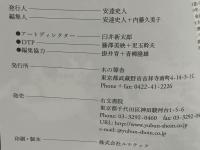 発行人――― 安達史人
編集人――― 安達史人+内藤久美子
●アートディレクター――― 臼井新太郎
●DTP――― 藤澤美映+児玉鈴夫
●編集協力――― 掛井育+青柳隆雄
発行所――― 木の聲舎
東京都武蔵野市吉祥寺南町4-14-3-1
Phone+fax 0422-41-2226
発売――― 右文書院
東京都千代田区神田駿河台1-5-6
Phone 03-3292-0460 fax 03-3292-
http://www.yubun-shoin.co.jp
mail@yubun-shoin.co.jp
印刷・製本――― 株式会社ルナテック